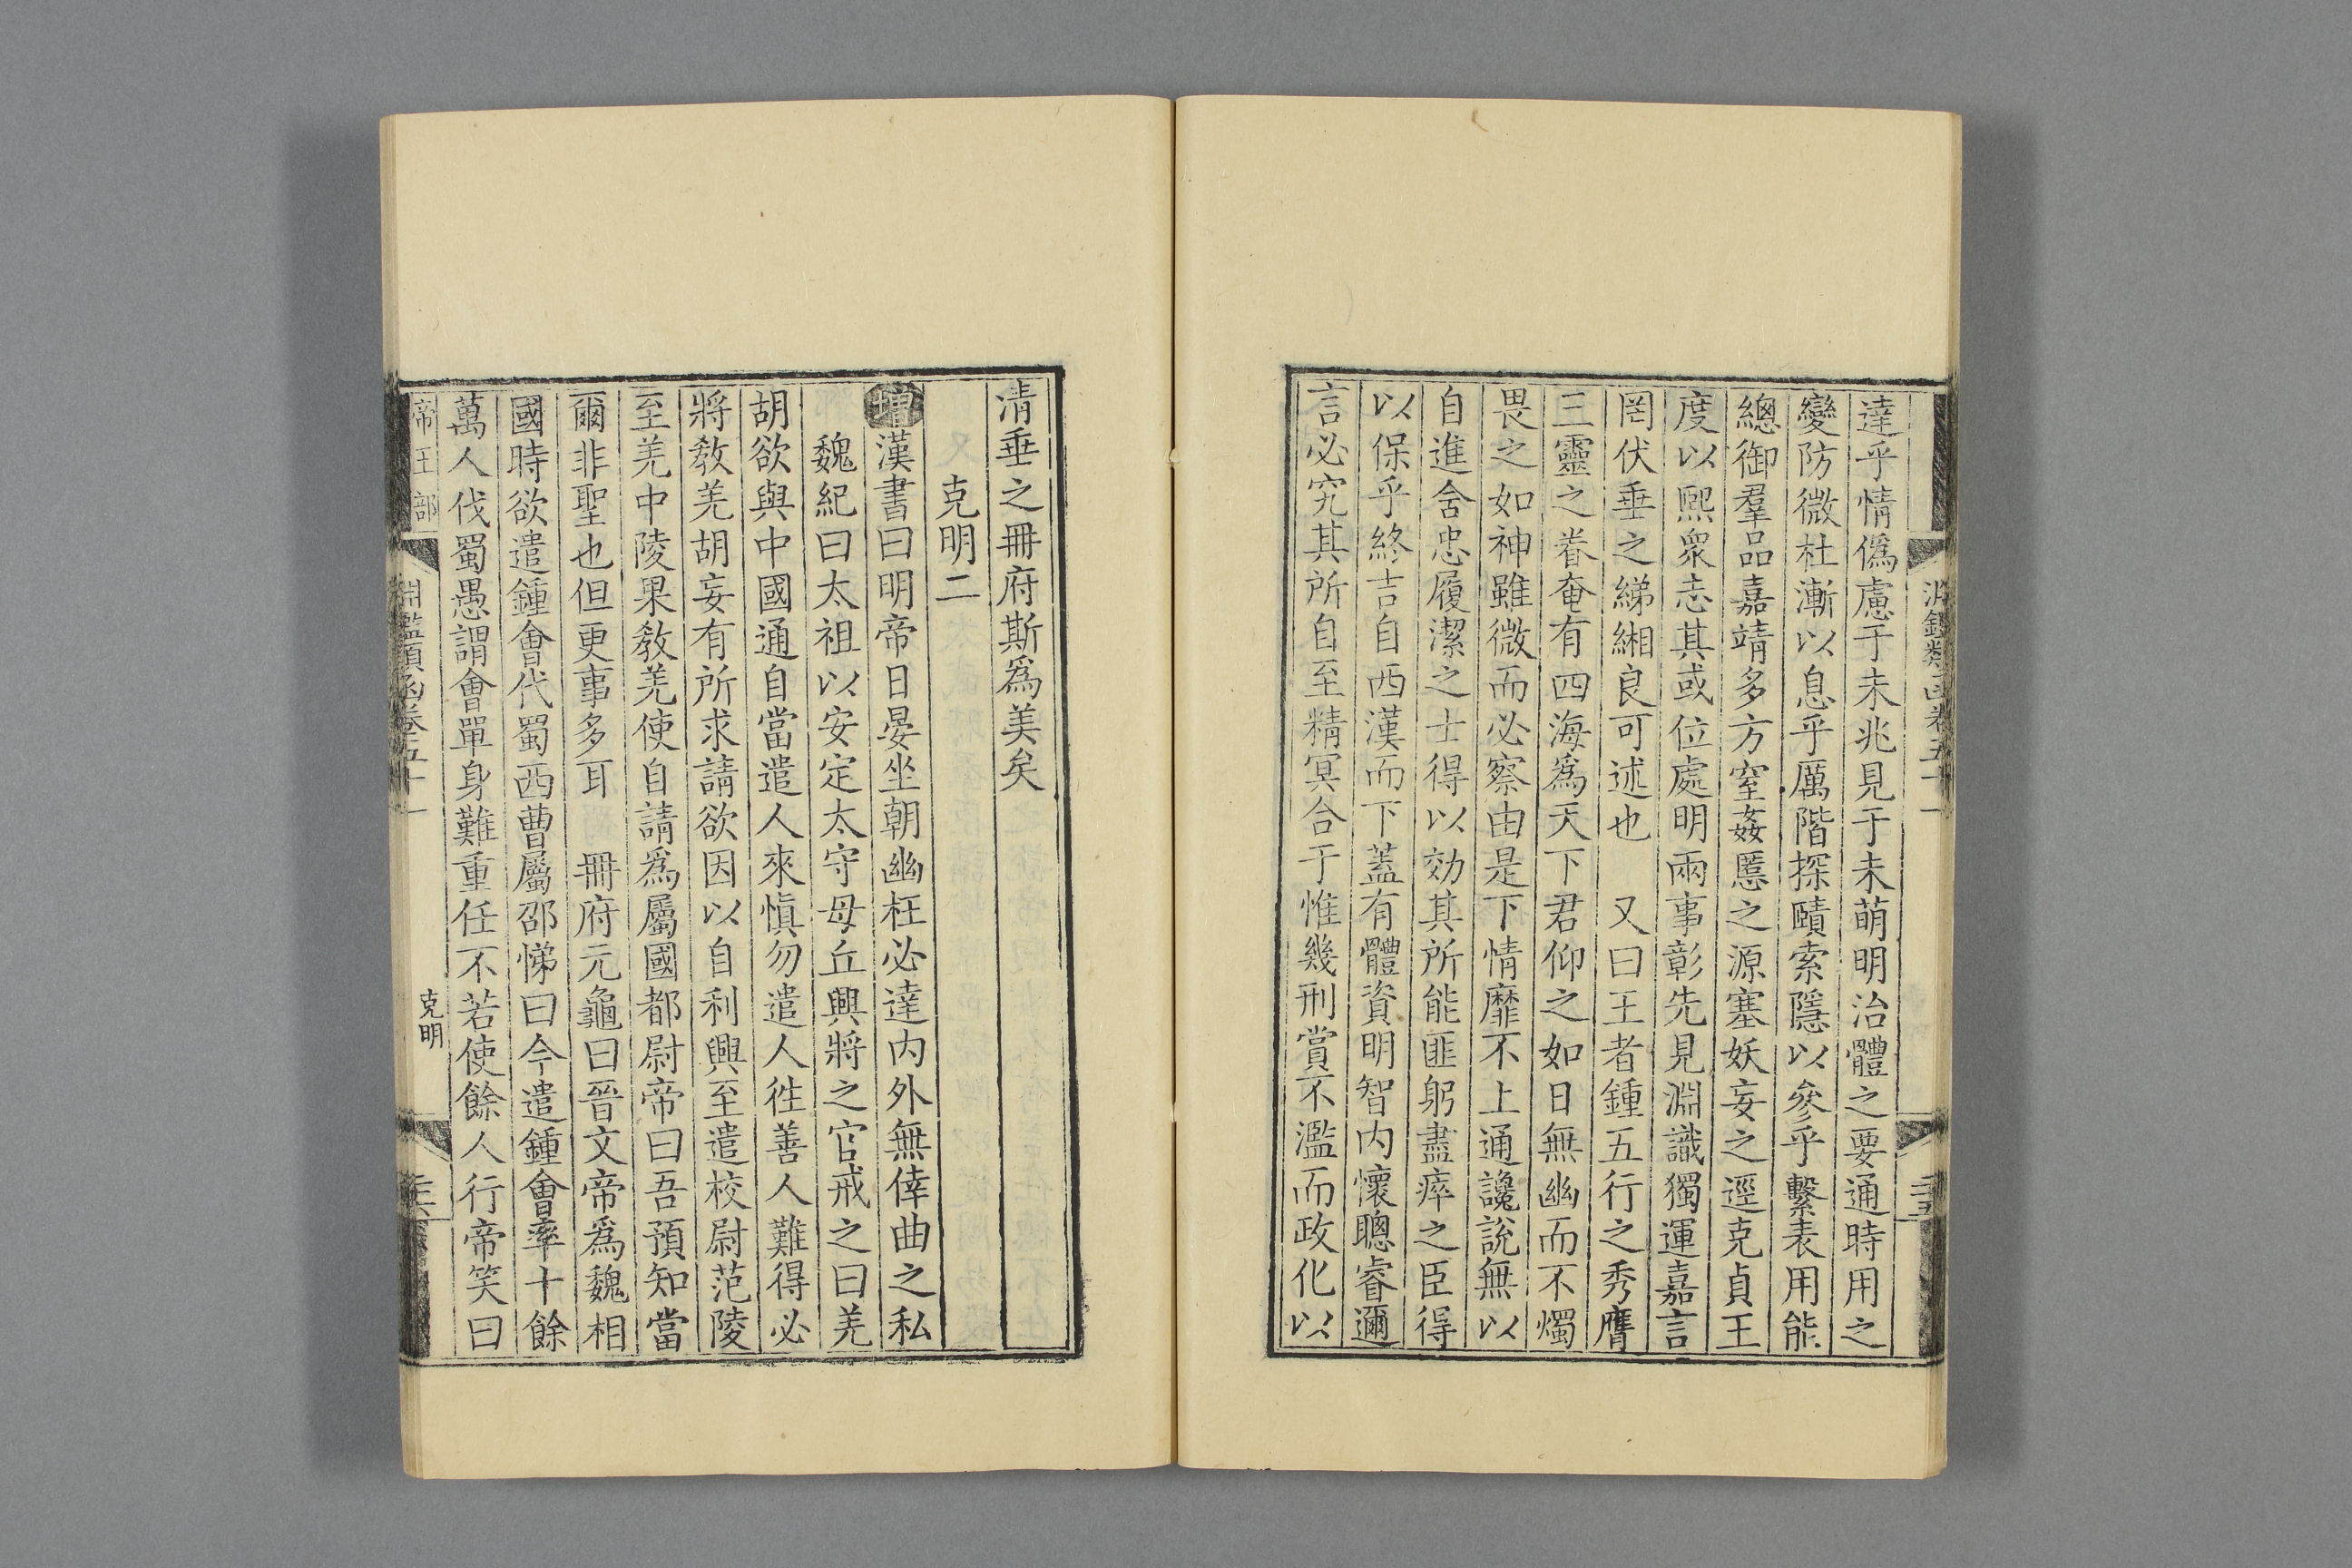 達乎情僞慮于未兆見于未萌明治體之要通時用之
變防微杜漸以息乎厲階探賾索隱以參乎繫表用能
總御羣品嘉靖多方窒姦慝之源塞妖妄之逕克貞王
度以熙衆志其或位處明兩事彰先見淵識獨運嘉言
罔伏垂之綈緗良可述也　又曰王者鍾五行之秀膺
三靈之眷奄有四海爲天下君仰之如日無幽而不燭
畏之如神雖微而必察由是下情靡不上通讒說無以
自進含忠履潔之士得以効其所能匪躬盡瘁之臣得
以保乎終吉自西漢而下蓋有體資明智内懷聰睿邇
言必究其所自至精冥合于惟幾刑賞不濫而政化以
清垂之冊府斯爲美矣
克明二
增漢書曰明帝日晏坐朝幽枉必達内外無倖曲之私
魏紀曰太祖以安定太守母丘興將之官戒之曰羌
胡欲與中國通自當遣人來愼勿遣人徃善人難得必
將敎羌胡妄有所求請欲因以自利興至遣校尉范陵
至羌中陵果敎羌使自請爲屬國都尉帝曰吾預知當
爾非聖也但更事多耳　冊府元龜曰晉文帝爲魏相
國時欲遣鍾會代蜀西曹屬邵悌曰今遣鍾會率十餘
萬人伐蜀愚謂會單身難重任不若使餘人行帝笑曰
帝王部
淵鑑類函卷五十一
克明